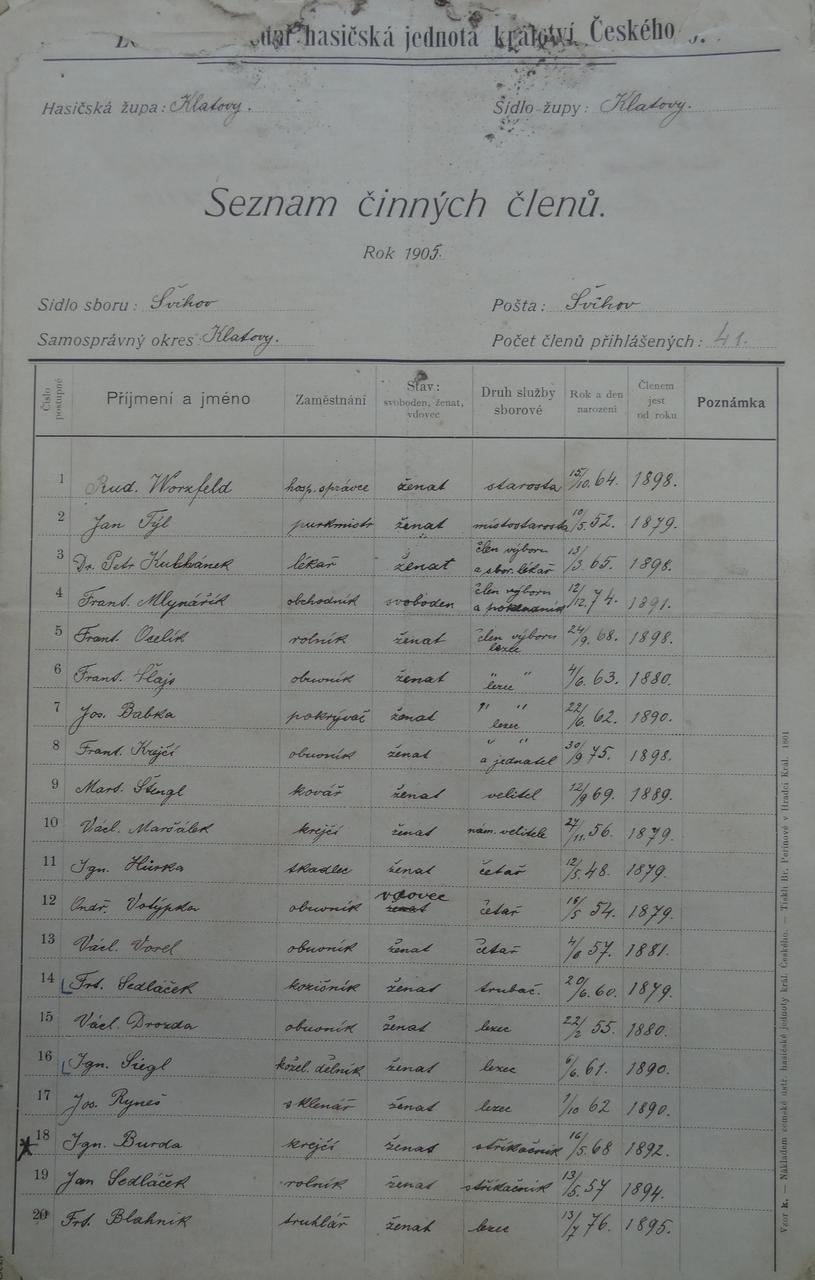 hasičská jednota království Českého
Hasičská župa: Klatovy. Sídlo župy: Klatovy.
Seznam činných členů.
Rok 1905.
Sídlo sboru: Švihov Pošta: Švihov
Samosprávný okres: Klatovy. Počet členů přihlášených: 41.
Číslo postupné Příjmení a jméno Zaměstnání Stav: svoboden, ženat, vdovec Druh služby sborové Rok a den narození Členem jest od roku Poznámka
1 Rud. Worzfeld hosp. správce ženat starosta 15/10. 64. 1898.
2 Jan Týl purkmistr ženat místostarosta 10/5. 52. 1879.
3 Dr. Petr lékař ženat člen výboru a sbor. lékař 13/3. 65. 1898.
4 Frant. Mlynářík obchodník svoboden člen výboru a pokladník 12/12. 74. 1891.
5 Frant. Ocelík rolník ženat člen výboru lezec 24/9. 68. 1898.
6 Frant. obuvník ženat " lezec " 4/6. 63. 1880.
7 Jos. Babka pokrývač ženat " lezec " 22/6. 62. 1890.
8 Frant. Krejčí obuvník ženat " " a jednatel 30/9 75. 1898.
9 Mart. Štengl kovář ženat velitel 12/9 69. 1889.
10 Václ. Maršálek krejčí ženat nám. velitele 27/11. 56. 1879.
11 Ign. Hůrka tkadlec ženat četař 12/5. 48. 1879.
12 Ondř. Votýpka obuvník vdovec ženat četař 16/5 54. 1879.
13 Václ. Vorel obuvník ženat četař 4/6 57. 1881.
14 Frt. Sedláček kožišník ženat trubač. 20/6. 60. 1879.
15 Václ. Drozda obuvník ženat lezec 22/2 55. 1880.
16 Ign. Siegl kožel. dělník ženat lezec 6/6. 61. 1890.
17 Jos. Ryneš sklenář ženat lezec 1/10 62 1890.
18 Ign. Burda krejčí ženat stříkačník 16/5. 68 1892.
19 Jan Sedláček rolník ženat stříkačník 13/5. 57 1894.
20 Frt. Blahník truhlář ženat lezec 13/7 76. 1895.
Vzor k. — Nákladem zemské ústř. hasičské jednoty král. Českého. — Tiskli Br. Peřinové v Hradci Král. 1901